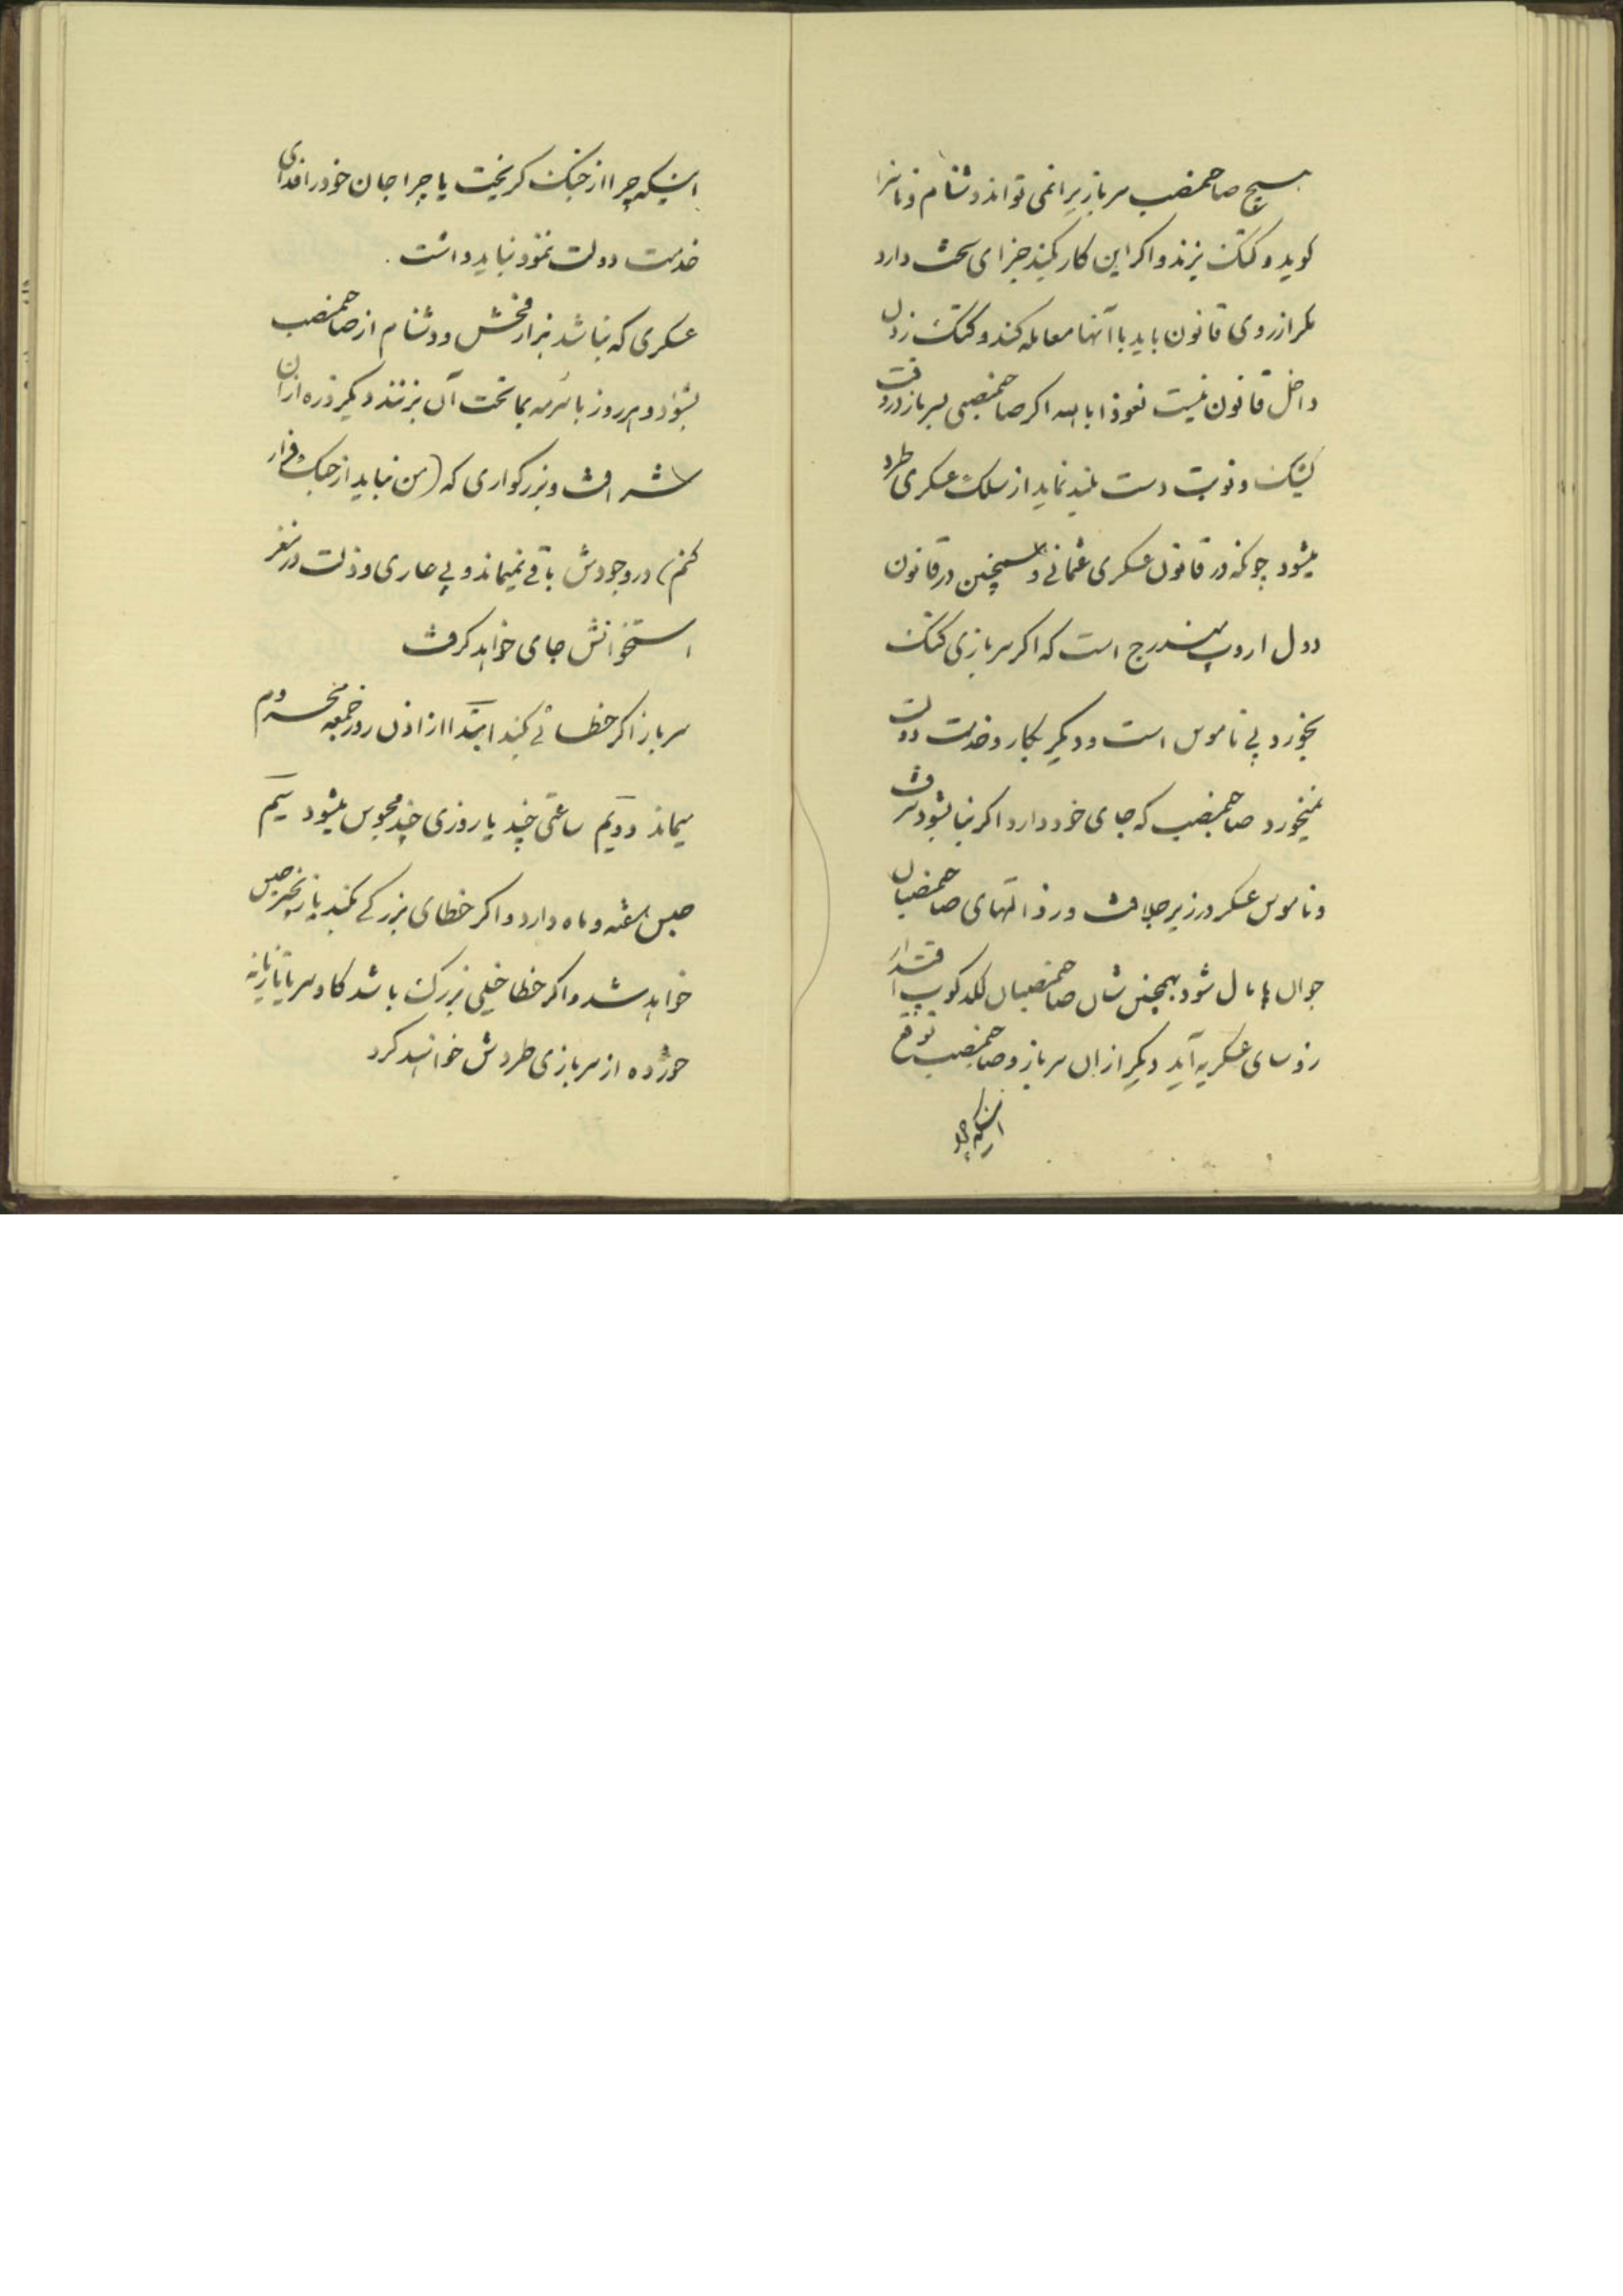 هیچ صاحمنصب سربازیرا نمی تواند دشنام و ناسزا
کوید و کتک بزند و اکر این کار کند جزای سخت دارد
مکر از روی قانون باید با آنها معامله کند و کتک زدن
داخل قانون نیست نعوذا بالله اکر صاحمنصبی بسرباز در وقت
کشیک و نوبت دست بلند نماید از سلک عسکری طرد
میشود چونکه در قانون عسکری عثمانی و همچنین در قانون
دول اروپ مندرج است که اکر سربازی کتک
بخورد بی ناموس است و دیکر بکار و خدمت دولت
نمیخورد صاحمنصب که جای خود دارد اکر بنا بشود شرف
و ناموس عسکر در زیر جلافت و رذالتهای صاحمنصبان
جوان پایمال شود همچنین شان صاحمنصبان لکدکوب اقتدار
رؤسای عسکریه آید دیکر از ان سرباز و صاحمنصب توقع
اینکه چرا
اینکه چرا از جنک کریخت یا چرا جان خود را فدای
خدمت دولت ننمود نباید داشت .
عسکری که بنا شد هزار فحش و دشنام از صاحمنصب
بشنود و هر روز با بما تحت آن بزنند دیکر ذره از ان
شرافت و بزرکواری که (من نباید از جنک فرار
کنم) در وجودش باقی نمیماند و بی عاری و ذلت در مغز
استخوانش جای خواهد کرفت
سرباز اکر خطائی کند ابتدا از اذن روز جمعه محروم
میماند دویم ساعتی چند یا روزی چند محبوس میشود سیم
حبس هفته و ماه دارد و اکر خطای بزرکی بکند با زنجیر حبس
خواهد شد و اکر خطا خیلی بزرک باشد کاه و سربا تازیانه
خورده از سربازی طردش خواهند کرد